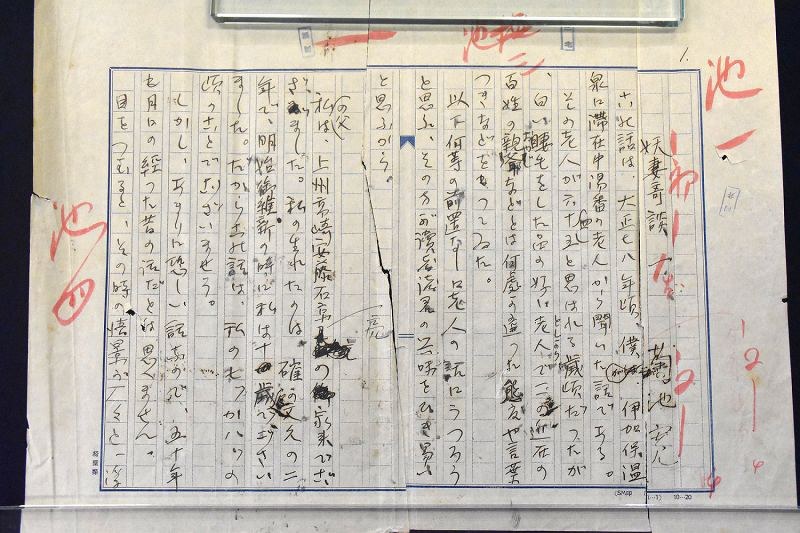 池一
池二
池四
1.
妖妻奇談 菊池寛
この話は、大正七八年頃、僕が伊香保温
泉に滞在中湯番の老人から聞いた話である。
その老人が六十五と思はれる歳頃だつたが
、白い鬚をした品の好い老人で、この近在の
百姓の親爺などとは何處か違つた態度や言葉
つきなどをもつてゐた。
以下何等の前置なしに老人の話にうつらう
と思ふ、その方が讀者諸君の興味をひき易い
と思ふから。
私の父は、上州高崎の安藤右京亮の家来でござ
いました。私の生れたのは、確か文久の二
年で、明治御維新の時に私は十歳でござい
ました。だからこの話は、私の七つか八つの
頃のことでございませう。
しかし、あまりに恐しい話なので、五十年
も月日の経つた昔の話だとは思へません。
目をつむると、その時の情景が
相馬屋
10…20